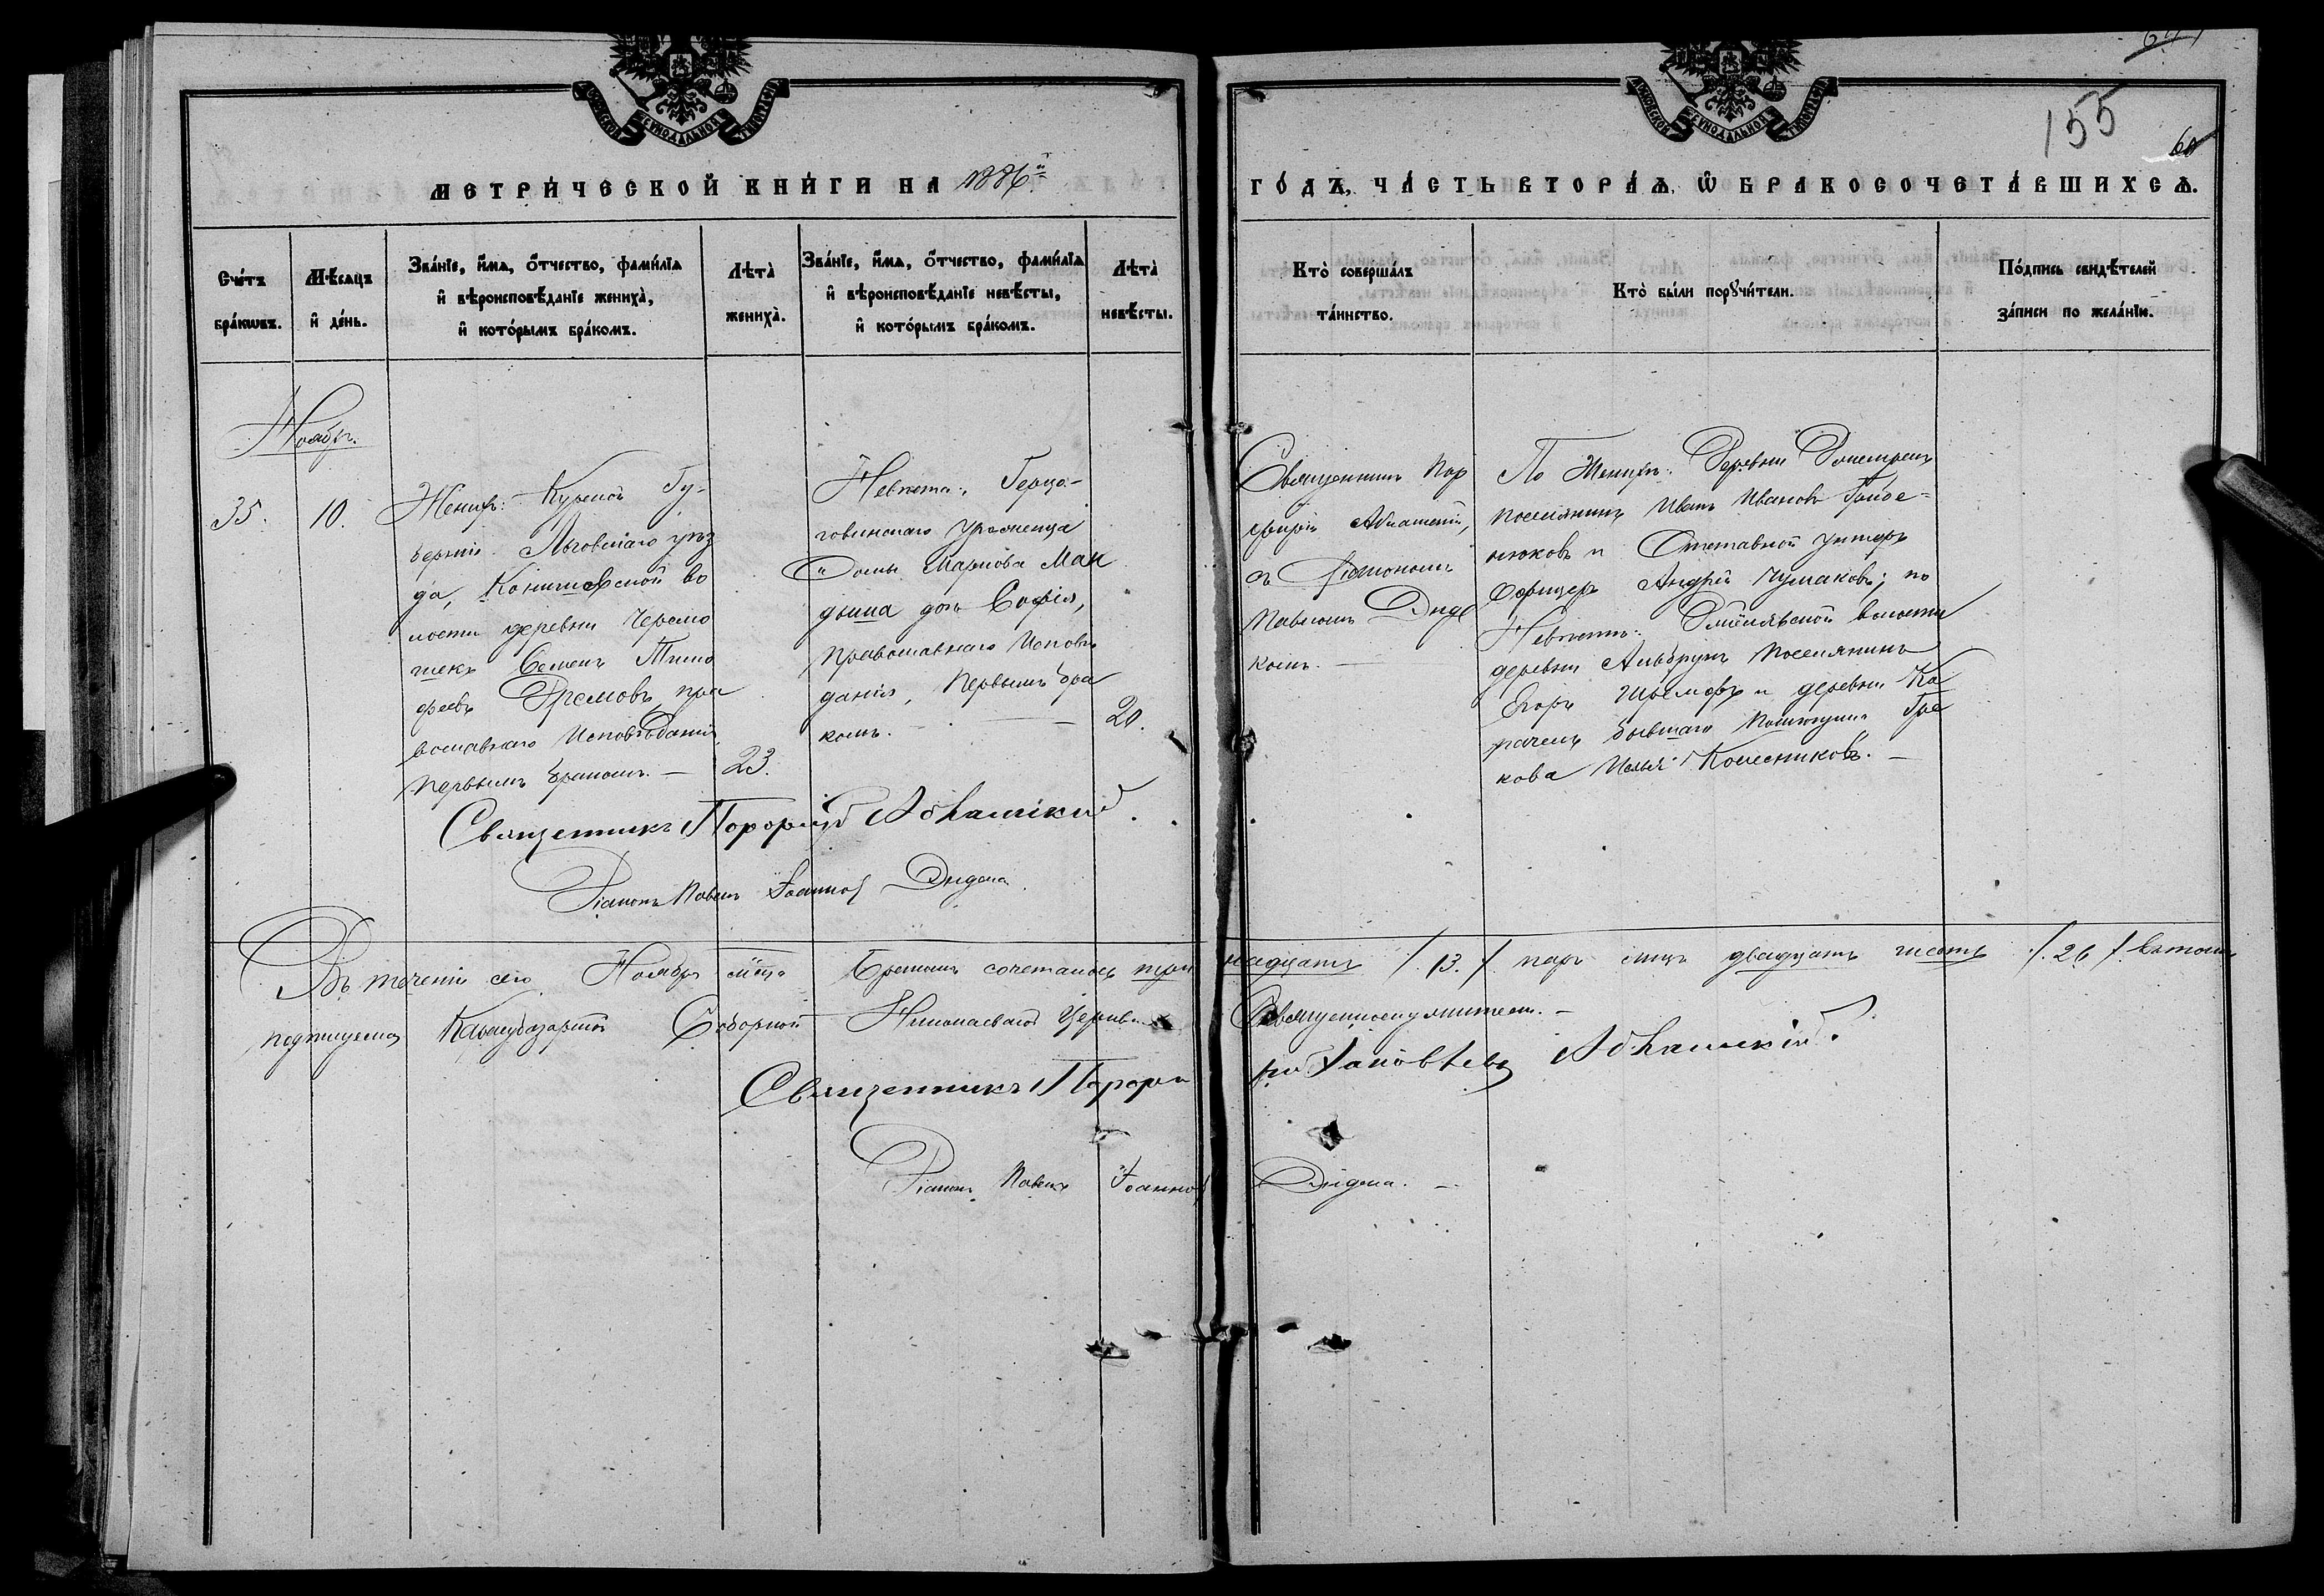 155
60
МОСКОВСКОЙ СѴНОДАЛЬНОЙ ТИПОГРАФІИ
МОСКОВСКОЙ СѴНОДАЛЬНОЙ ТИПОГРАФІИ
МЕТРИ́ЧЕСКОЙ КНИ́ГИ НА 1886й
ГО́ДЪ, ЧА́СТЬ ВТОРА́Ѧ, Ѡ БРАКОСОЧЕТА́ВШИХСѦ.
Сче́тъ
бра́кѡвъ.
Мѣ́сяцъ
и де́нь.
Зва́нїе, и́мѧ, ѻ́тчество, фами́лїѧ
и вѣроисповѣ́данїе жениха̀,
и кото́рымъ бра́комъ.
Лѣта̀
жениха̀.
Зва́нїе, и́мѧ, ѻ́тчество, фами́лїѧ
и вѣроисповѣ́данїе невѣ́сты,
и кото́рымъ бра́комъ.
Лѣта̀
невѣ́сты.
Кто̀ соверша́лъ
та́инство.
Кто̀ бы́ли порꙋчи́тели.
По́дпись свидѣ́телей
за́писи по жела́нїю.
Ноябрь.
35.
10.
Женихъ: Курской Гу-
берніи Льговскаго уѣз
да, Конышевской во
лости деревни Черемо
шекъ Семенъ Тимо
феевъ Еремовъ, пра
вославнаго Исповѣданія,
первымъ бракомъ. —
23.
Невѣста: Герцо-
говинскаго уроженца
Ѳомы Маркова Ман
дыша дочь Софія,
православнаго Исповѣ
данія, первымъ бра
комъ. —
20.
Священникъ Пор
фирій Абламскій,
съ Діакономъ
Павломъ Диде
комъ. —
По Женихѣ: Деревни
поселянинъ Иванъ Ивановъ
и Отставной унтеръ
Офицеръ Андрей Чумаковъ; по
Невѣстѣ: волости
деревни поселянинъ
Егоръ и деревни Ка
рачель бывшаго Гре
кова Илья Колесниковъ. —
Священникъ Порфирій Абламскій.
Діаконъ Павелъ Іоанновъ Дидека
Въ теченіи сего Ноября мѣсяца Бракомъ сочеталось тринадцать /. 13. / паръ лицъ двадцать шесть /. 26 /. Въ томъ
подписуемся Карасубазарской Соборной Николаевской Церкви Священнослужители. —
Священникъ Порфирій Іаковлевъ Абламскій.
Діаконъ Павелъ Іоанновъ Дидека. —